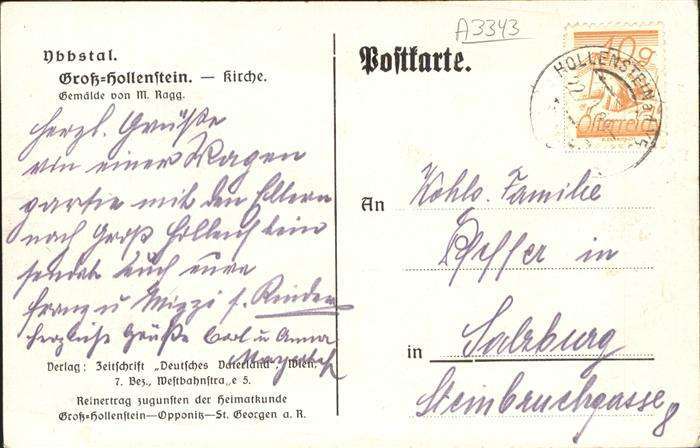 A3343
Ybbstal.
Groß-Hollenstein. — Kirche.
Gemälde von M. Ragg.
Postkarte.
40g
Österreich
HOLLENSTEIN a.d. Y.
herzl. Grüße
von einer Wagen
partie mit den Eltern
nach Groß Hollenstein
sendet Euch eure
Franz u Mizzi s. Kinder
herzliche Grüße Carl u Anna
An
Wohlg. Familie
in
in Salzburg
Steinbruchgasse 8
Verlag: Zeitschrift „Deutsches Vaterland“, Wien,
7. Bez., Westbahnstraße 5.
Reinertrag zugunsten der Heimatkunde
Groß-Hollenstein—Opponitz—St. Georgen a. R.